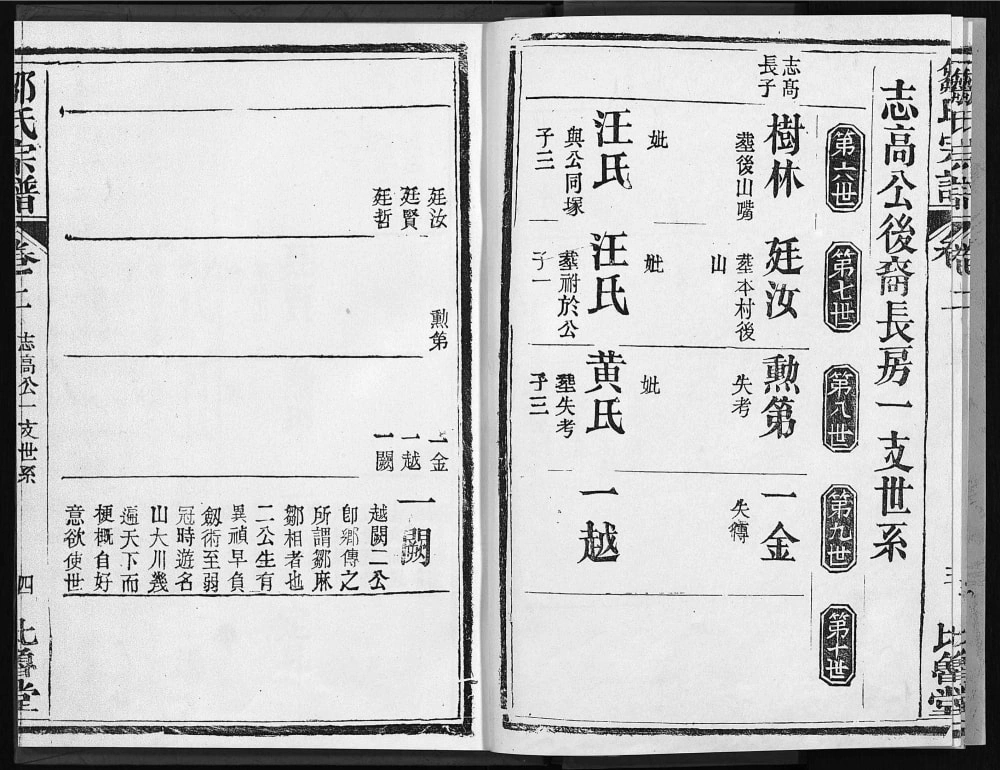 志高公後裔長房一支世系
第六世
第七世
第八世
第九世
第十世
志高
長子
樹林
塟後山嘴
妣
汪氏
與公同塚
子三
廷汝
塟本村後
山
妣
汪氏
塟祔於公
子一
勲第
失考
妣
黄氏
塟失考
子三
一金
失傳
一越
比魯堂
廷汝
廷賢
廷哲
勲第
一金
一越
一闕
一闕
越闕二公
卽鄉傳之
所謂鄒麻
鄒相者也
二公生有
異禎早負
劔術至弱
冠時遊名
山大川幾
遍天下而
梗概自好
意欲使世
鄒氏宗譜
卷二
志高公一支世系
四
比魯堂